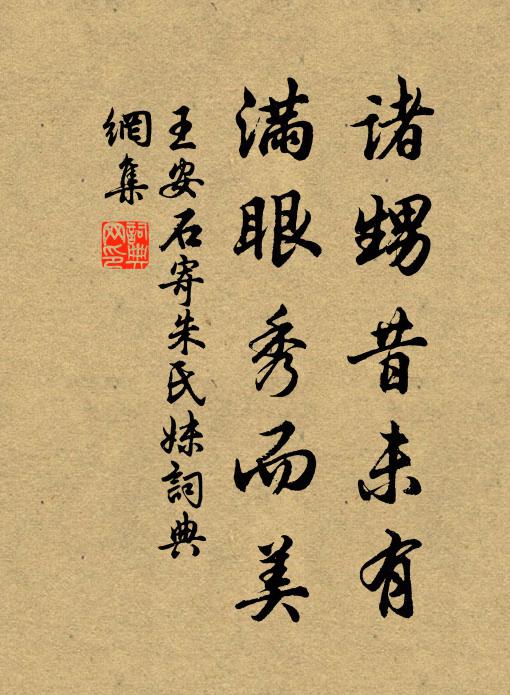 诸甥昔未有
满眼秀而美
王安石寄朱氏妹詞典
網集
詞典
网印